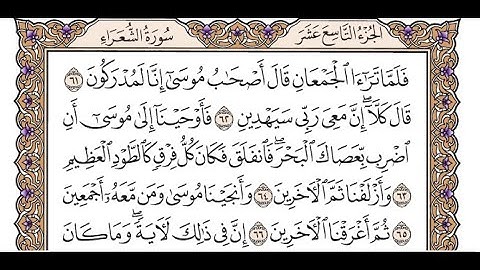 الجزء التاسع عشر سورة الشعراء
فَلَمَّا تَرَٰٓءَا ٱلۡجَمۡعَانِ قَالَ أَصۡحَٰبُ مُوسَىٰٓ إِنَّا لَمُدۡرَكُونَ ٦١
قَالَ كَلَّآۖ إِنَّ مَعِيَ رَبِّي سَيَهۡدِينِ ٦٢ فَأَوۡحَيۡنَآ إِلَىٰ مُوسَىٰٓ أَنِ
ٱضۡرِب بِّعَصَاكَ ٱلۡبَحۡرَۖ فَٱنفَلَقَ فَكَانَ كُلُّ فِرۡقٖ كَٱلطَّوۡدِ ٱلۡعَظِيمِ
٦٣ وَأَزۡلَفۡنَا ثَمَّ ٱلۡأٓخَرِينَ ٦٤ وَأَنجَيۡنَا مُوسَىٰ وَمَن مَّعَهُۥٓ أَجۡمَعِينَ
٦٥ ثُمَّ أَغۡرَقۡنَا ٱلۡأٓخَرِينَ ٦٦ إِنَّ فِي ذَٰلِكَ لَأٓيَةٗۖ وَمَا كَانَ